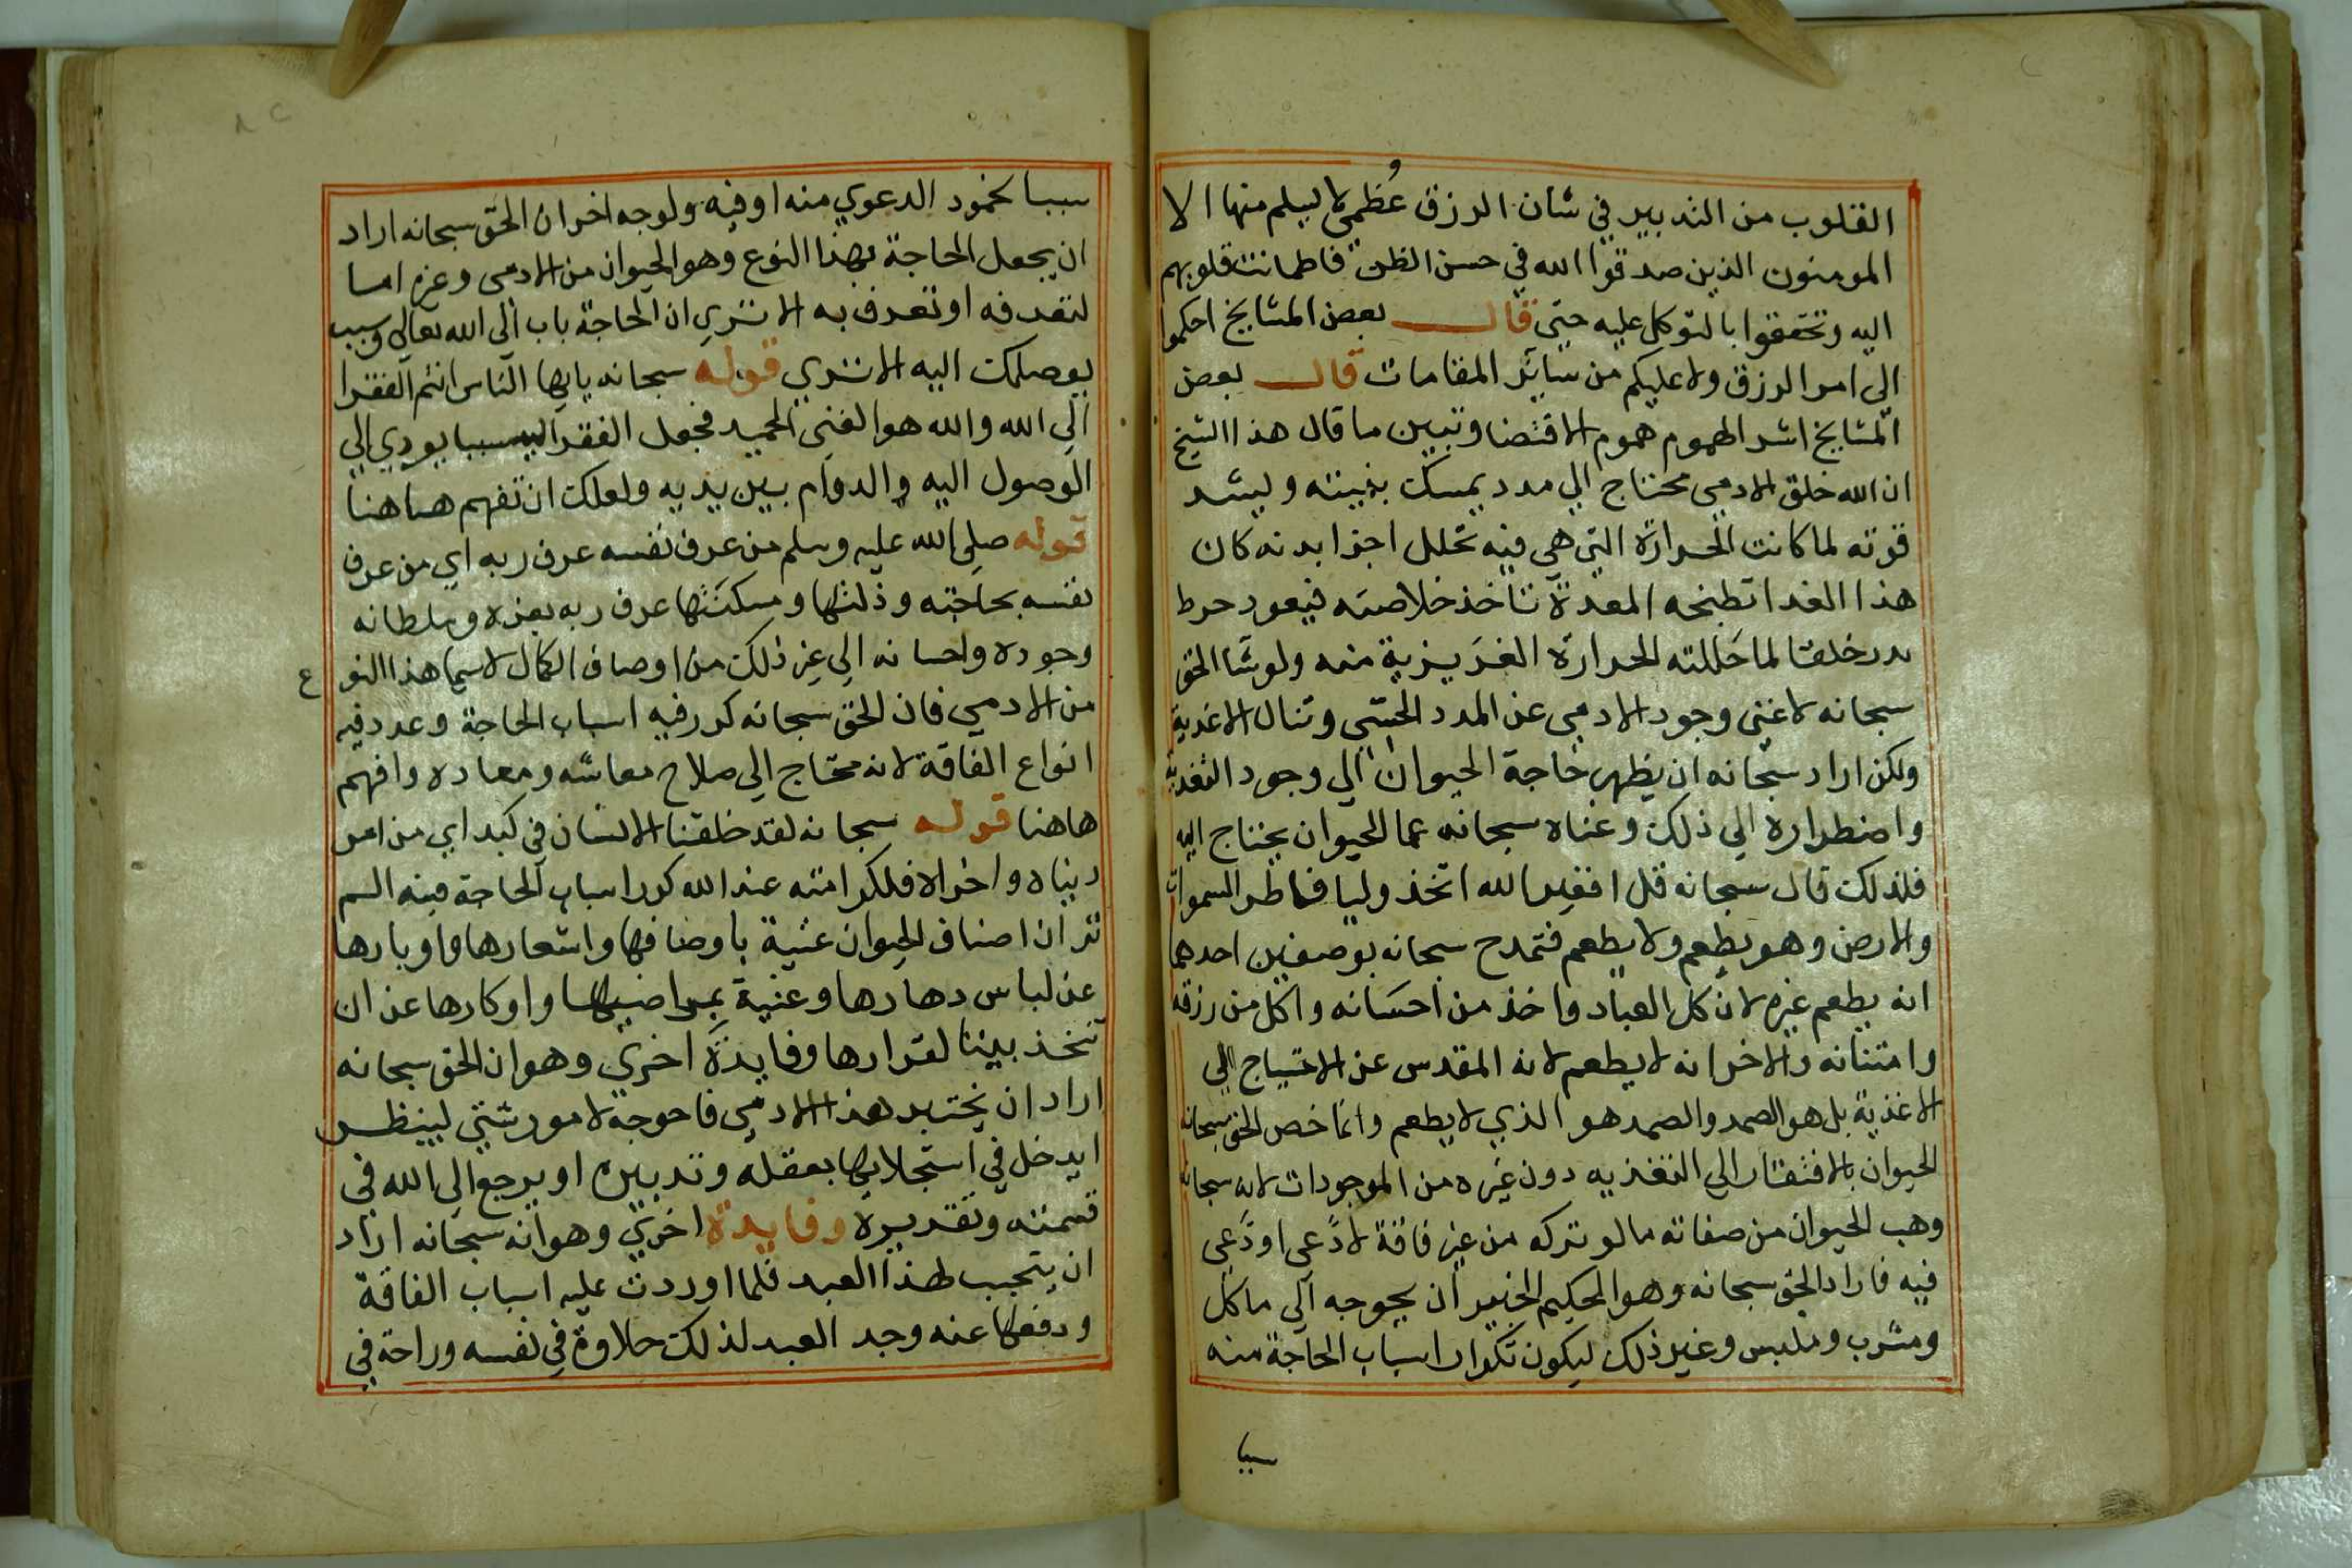 القلوب من التدبير في شان الرزق عُظمى لا يسلم منها الا
المومنون الذين صدقوا الله في حسن الظن فاطمانت قلوبهم
اليه وتحققوا بالتوكل عليه حتى قال بعض المشايخ احكموا
الي امر الرزق ولا عليكم من ساير المقامات قال بعض
المشايخ اشد الهموم هموم الاقتضا وتبيين ما قال هذا الشيخ
ان الله خلق الادمي محتاج الي مدد يمسك بنيته ويشد
قوته لما كانت الحرارة التي هي فيه تحلل اجزا بدنه كان
هذا الغدا تطبخه المعدة تاخذ خلاصته فيعود
خلفا لما حَللته الحرارة الغَريزية منه ولو شا الحق
سبحانه لاغني وجود الادمي عن المدد الحسّي وتنال الاغدية
ولكن اراد سبحانه ان يظهر حاجة الحيوان الي وجود التغدية
واضطراره الي ذلك وغناه سبحانه عما الحيوان يحتاج اليه
فلذلك قال سبحانه قل افغير الله اتخذ وليا فاطر السموات
والارض وهو يطعم ولا يطعم فتمدح سبحانه بوصفين احدهما
انه يطعم غيره لان كل العباد واخذ من احسَانه واكل من رزقه
وامتنانه والاخر انه لا يطعم لانه المقدس عن الاحتياج الي
الاغذية بل هو الصمد والصمد هو الذي لا يطعم وانما خص الحق سبحانه
الحيوان بالافتقار الي التغذيه دون غيره من الموجودات لانه سبحانه
وهب الحيوان من صفاته ما لو تركه من غير فاقة لادَّعى او دَّعي
فيه فاراد الحق سبحانه وهو الحكيم الخبير ان يحوجه الي ماكل
ومشرب وملبس وغير ذلك ليكون تكرار اسباب الحاجة منه
سببا
سببا لخمود الدعوي منه او فيه ولوجه اخر ان الحق سبحانه اراد
ان يجعل الحاجة بهذا النوع وهو الحيوان من الادمى وغيره اما
لتعرفه او تعرف به الا تري ان الحاجة باب الي الله تعالي وسبب
يوصلك اليه الا تري قوله سبحانه يايها الناس انتم الفقرا
الي الله والله هو الغني الحميد فجعل الفقر اليه سببا يودي الي
الوصول اليه والدوام بين يديه ولعلك ان تفهم هاهنا
قوله صلي الله عليه وسلم من عرف نفسه عرف ربه اي من عرف
نفسه بحاجته وذلتها ومسكنتها عرف ربه بعزه وسلطانه
وجوده واحسانه الي غير ذلك من اوصاف الكمال لاسيما هذا النوع
من الادمي فان الحق سبحانه كرر فيه اسباب الحاجة وعدد فيه
انواع الفاقة لانه محتاج الي صلاح معاشه ومعاده وافهم
هاهنا قوله سبحانه لقد خلقنا الانسان في كبد اي من امر
دنياه واخراه فلكرامته عند الله كرر اسباب الحاجة فيه الم
تر ان اصناف الحيوان غنية باوصافها واشعارها واوبارها
عن لباس دهارها وغنية بمراضيها واوكارها عن ان
تتخذ بيتا لقرارها وفايدة اخري وهو ان الحق سبحانه
اراد ان يختبر هذا الادمي فاحوجه لامور شتي لينظر
ايدخل في استجلابها بعقله وتدبيره او يرجع الي الله في
قسمته وتقديره وفايدة اخري وهو انه سبحانه اراد
ان يتحبب لهذا العبد فلما اوردت عليه اسباب الفاقة
ودفعها عنه وجد العبد لذلك حلاوة في نفسه وراحة في